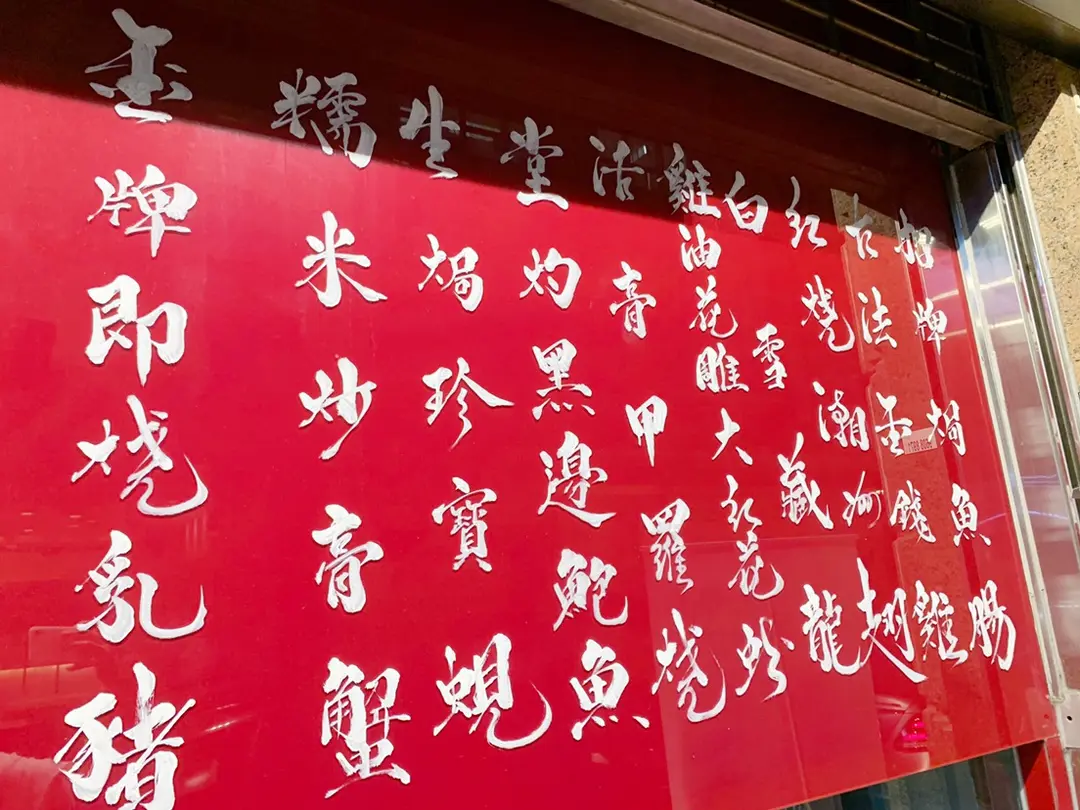 招牌焗魚腸
古法金錢雞
紅燒潮州翅
白雪藏龍
雞油花雕大紅花蚧
活膏甲羅燒
堂灼黑邊鮑魚
生焗珍寶蜆
糯米炒膏蟹
金牌即燒乳豬